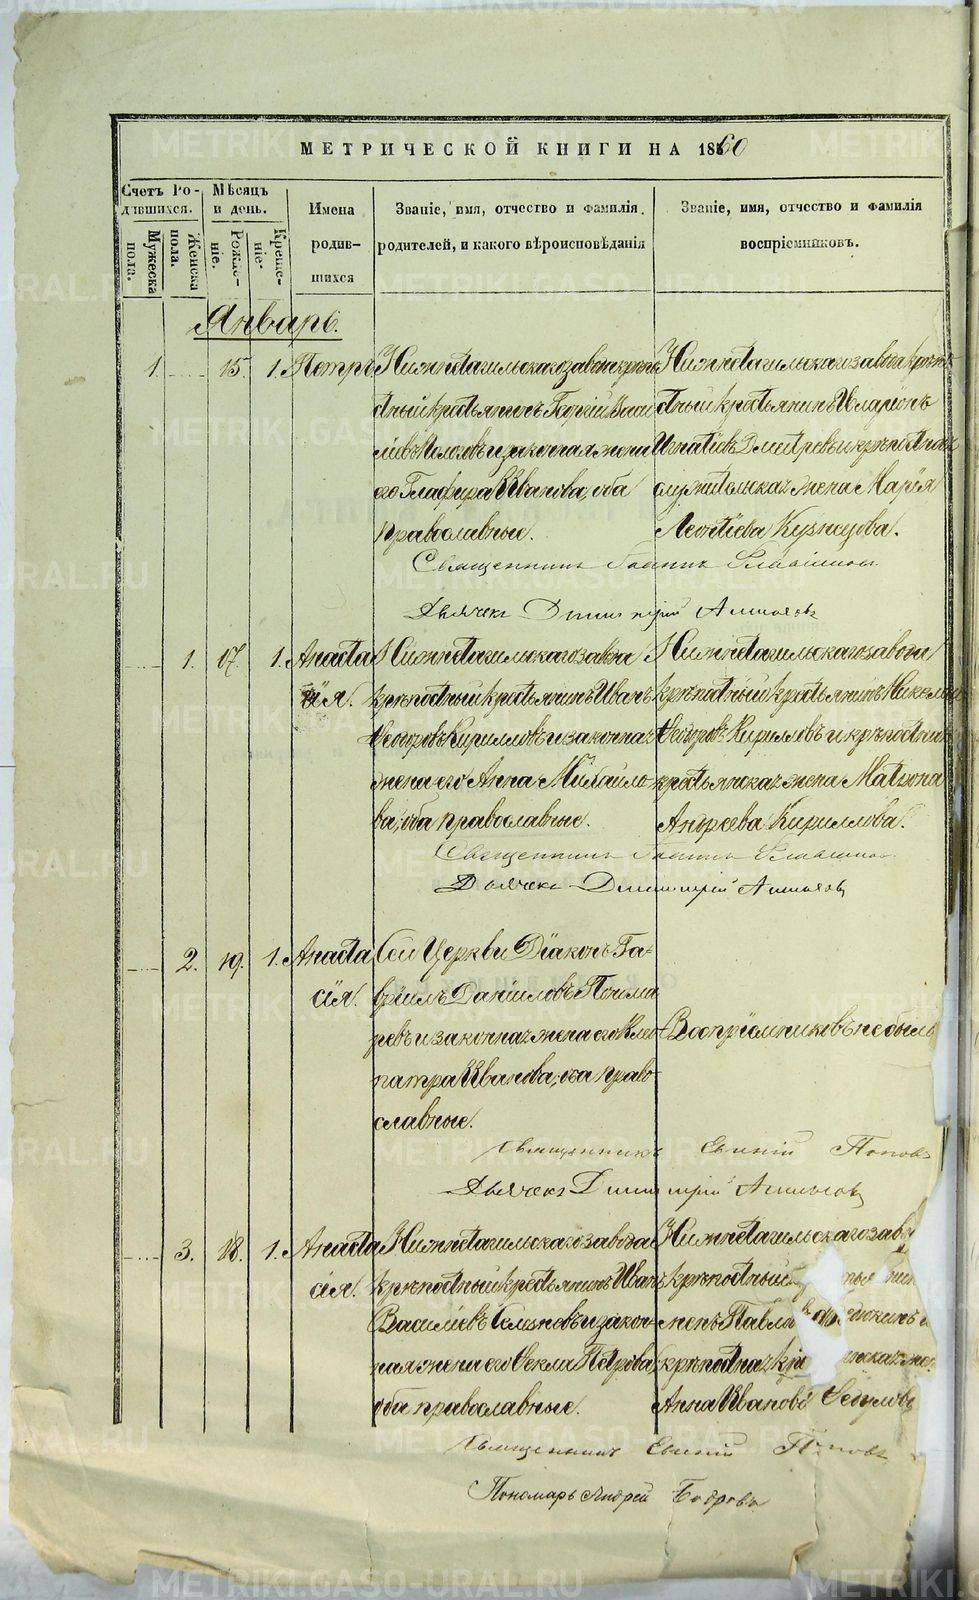 МЕТРИЧЕСКОЙ КНИГИ НА 1860
Счетъ Ро-
дившихся.
Мѣсяцъ
и день.
Имена
родив-
шихся
Званіе, имя, отчество и фамилія
родителей, и какого вѣроисповѣданія
Званіе, имя, отчество и фамилія
воспріемниковъ.
Мужеска
пола.
Женска
пола.
Рожде-
ніе.
Креще-
ніе.
Январь.
1. 15. 1. Петръ
Нижнетагильскаго завода крѣпо-
стный крестьянинъ Георгій Васи
льевъ и законная жена
его Глафира Иванова, оба
православные.
Нижнетагильскаго завода крѣпо
стный крестьянинъ Иларіонъ
Игнатіевъ Дмитревъ и крѣпостная
служительская жена Марія
Леонтіева Кузнецова.
Священникъ Іоаннъ
Дьячекъ Димитрій
1. 17. 1. Анаста
сія.
Нижнетагильскаго завода
крѣпостный крестьянинъ Иванъ
Ѳеодоровъ Кирилловъ и законная
жена его Анна Михайло
ва, оба православные.
Нижнетагильскаго завода
крѣпостный крестьянинъ Николай
Ѳеодоровъ Кирилловъ и крѣпостная
крестьянская жена Матрона
Андреева Кириллова.
Священникъ Іоаннъ
Дьячекъ Димитрій
2. 19. 1. Анаста
сія.
Сей Церкви Діаконъ Га-
вріилъ Даніиловъ Понома
ревъ и законная жена его Клео-
патра Иванова, оба право-
славные.
Воспріемниковъ не было
Священникъ Евгеній Поповъ
Дьячекъ Димитрій
3. 18. 1. Анаста
сія.
Нижнетагильскаго завода
крѣпостный крестьянинъ Иванъ
Васильевъ и закон-
ная жена его Ѳекла Петрова,
оба православные.
Нижнетагильскаго заво
крѣпостный
крѣпостная
Анна Иванова
Священникъ Евгеній Поповъ
Пономарь Андрей Бобровъ
METRIKI.GASO-URAL.RU